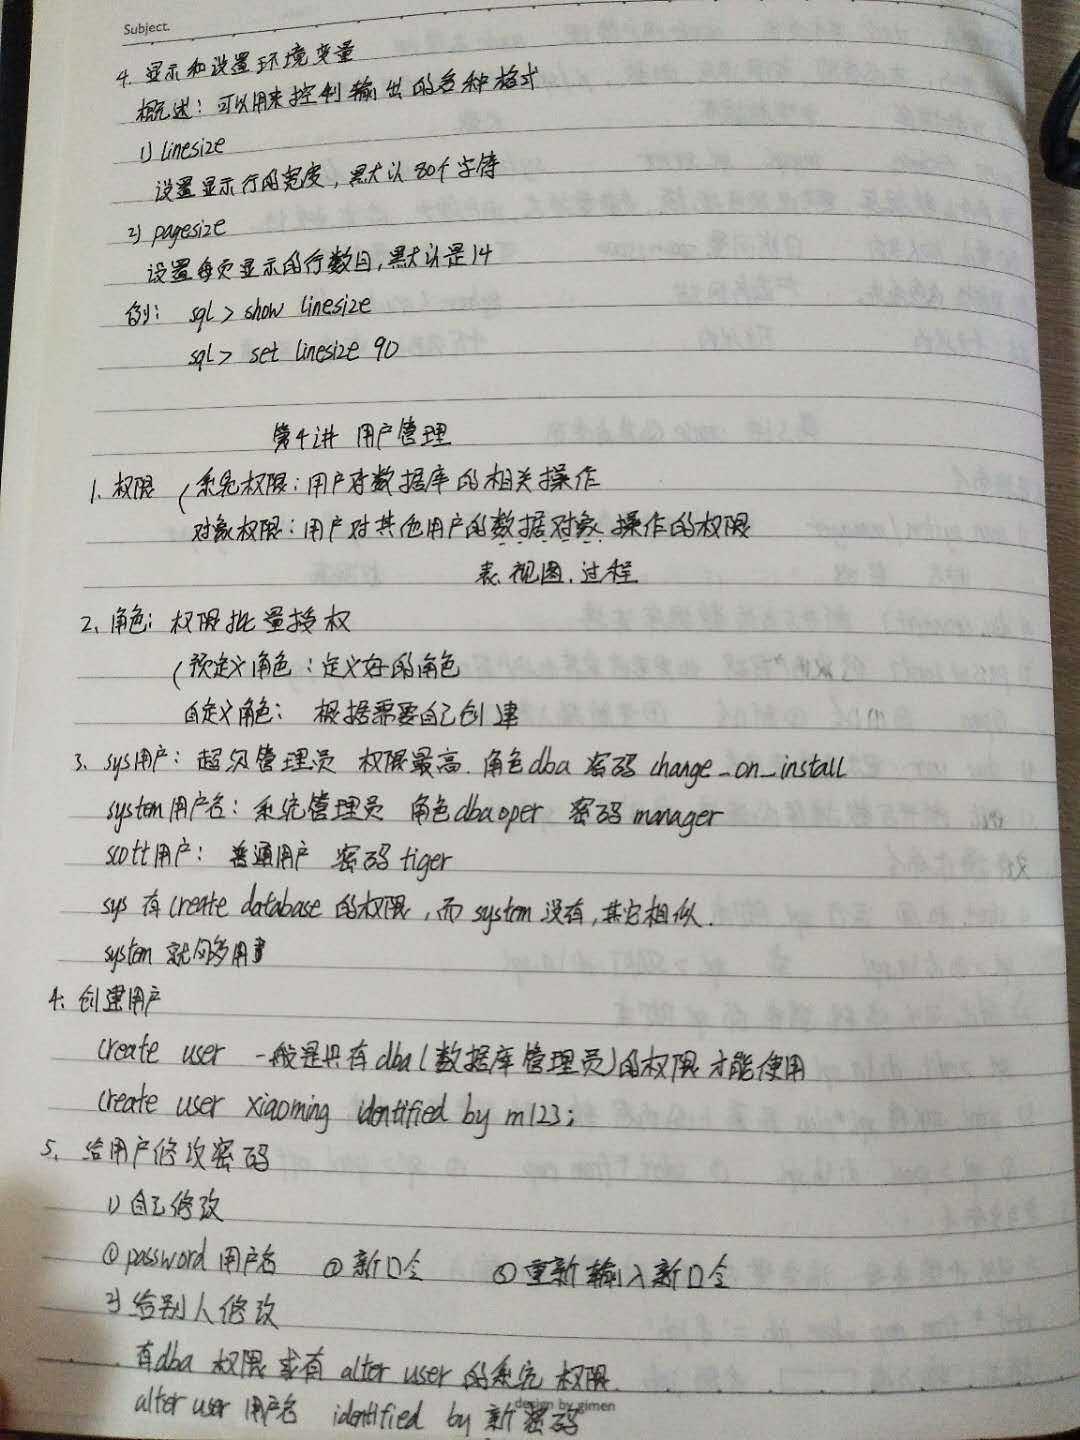 Subject.
4. 显示和设置环境变量
概述：可以用来控制输出的各种格式
1) linesize
设置显示行的宽度，默认80个字符
2) pagesize
设置每页显示的行数目，默认是14
例：sql > show linesize
sql > set linesize 90
第4讲 用户管理
1. 权限 ( 系统权限：用户对数据库的相关操作
对象权限：用户对其他用户的数据对象操作的权限
表.视图.过程
2、角色：权限批量授权
( 预定义角色：定义好的角色
自定义角色：根据需要自己创建
3、sys用户：超级管理员 权限最高.角色dba 密码 change_on_install
system用户名：系统管理员 角色dbaoper 密码 manager
scott用户：普通用户 密码 tiger
sys 有 create database 的权限，而 system 没有，其它相似.
system 就够多用
4、创建用户
create user 一般是具有dba(数据库管理员)的权限才能使用
create user xiaoming identified by m123;
5、给用户修改密码
1) 自己修改
①password 用户名 ②新口令 ③重新输入新口令
2) 给别人修改
有dba 权限或有 alter user 的系统权限
alter user 用户名 identified by 新密码
design by gimen